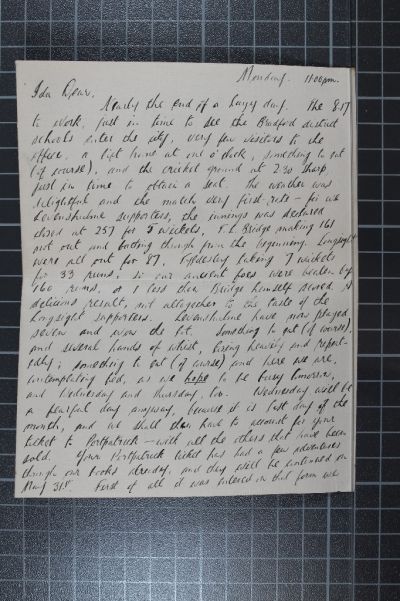 Monday. 11.00pm.
Ida Dear,
Nearly the end of a lazy day. The 8.17
to work, just in time to see the Bradford district
schools enter the city, very few visitors to the
office, a lift home at one o'clock, something to eat
(of course), and the cricket ground at 2.30 sharp,
just in time to obtain a seat. The weather was
delightful and the match very first rate – for we
Levenshulme supporters, the innings was declared
closed at 257 for 5 wickets, F.L. Bridge making 161
not out and batting through from the beginning. Longsight
were all out for 87, taking 7 wickets
for 33 runs, so our ancient foes were beaten by
160 runs, or 1 less than Bridge himself scored. A
delicious result, not altogether to the taste of the
Longsight supporters. Levenshulme have now played
seven and won the lot. Something to eat (of course),
and several hands of whist, losing heavily and repeat-
edly; something to eat (of course) and here we are,
contemplating bed, as we hope to be busy tomorrow,
and Wednesday and Thursday, too. Wednesday will be
a fearful day anyway, because it is last day of the
month, and we shall then have to account for your
ticket to Portpatrick – with all the others that have been
sold. Your Portpatrick ticket has had a few adventures
through our books already, and they will be continued on
May 31st. First of all it was entered in that form we